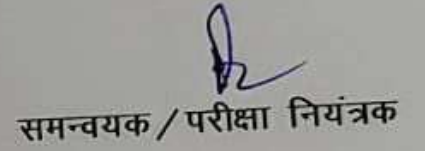 समन्वयक/परीक्षा नियंत्रक